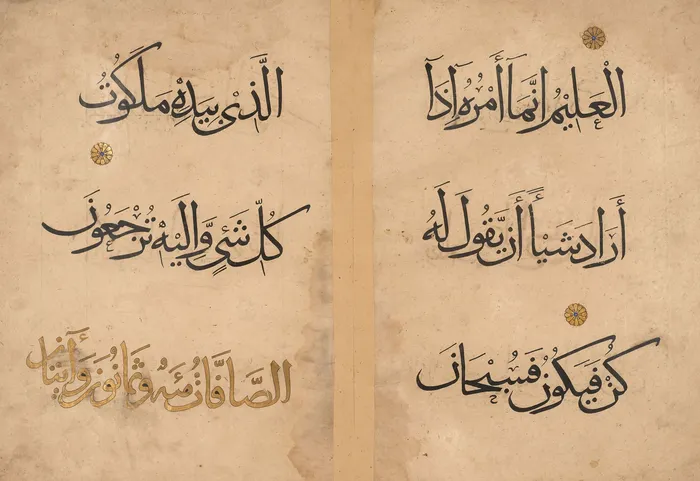 الْعَلِيمُ اِنَّمَآ أَمْرُهُ اِذَآ
أَرَادَ شَيْأً أَنْ يَّقُولَ لَهُ
كُنْ فَيَكُونُ فَسُبْحَانَ
الَّذِي بِيَدِهِ مَلَكُوتُ
كُلِّ شَيْءٍ وَّاِلَيْهِ تُرْجَعُونَ
الصَّافَّات مئه وثمانون وآيتان